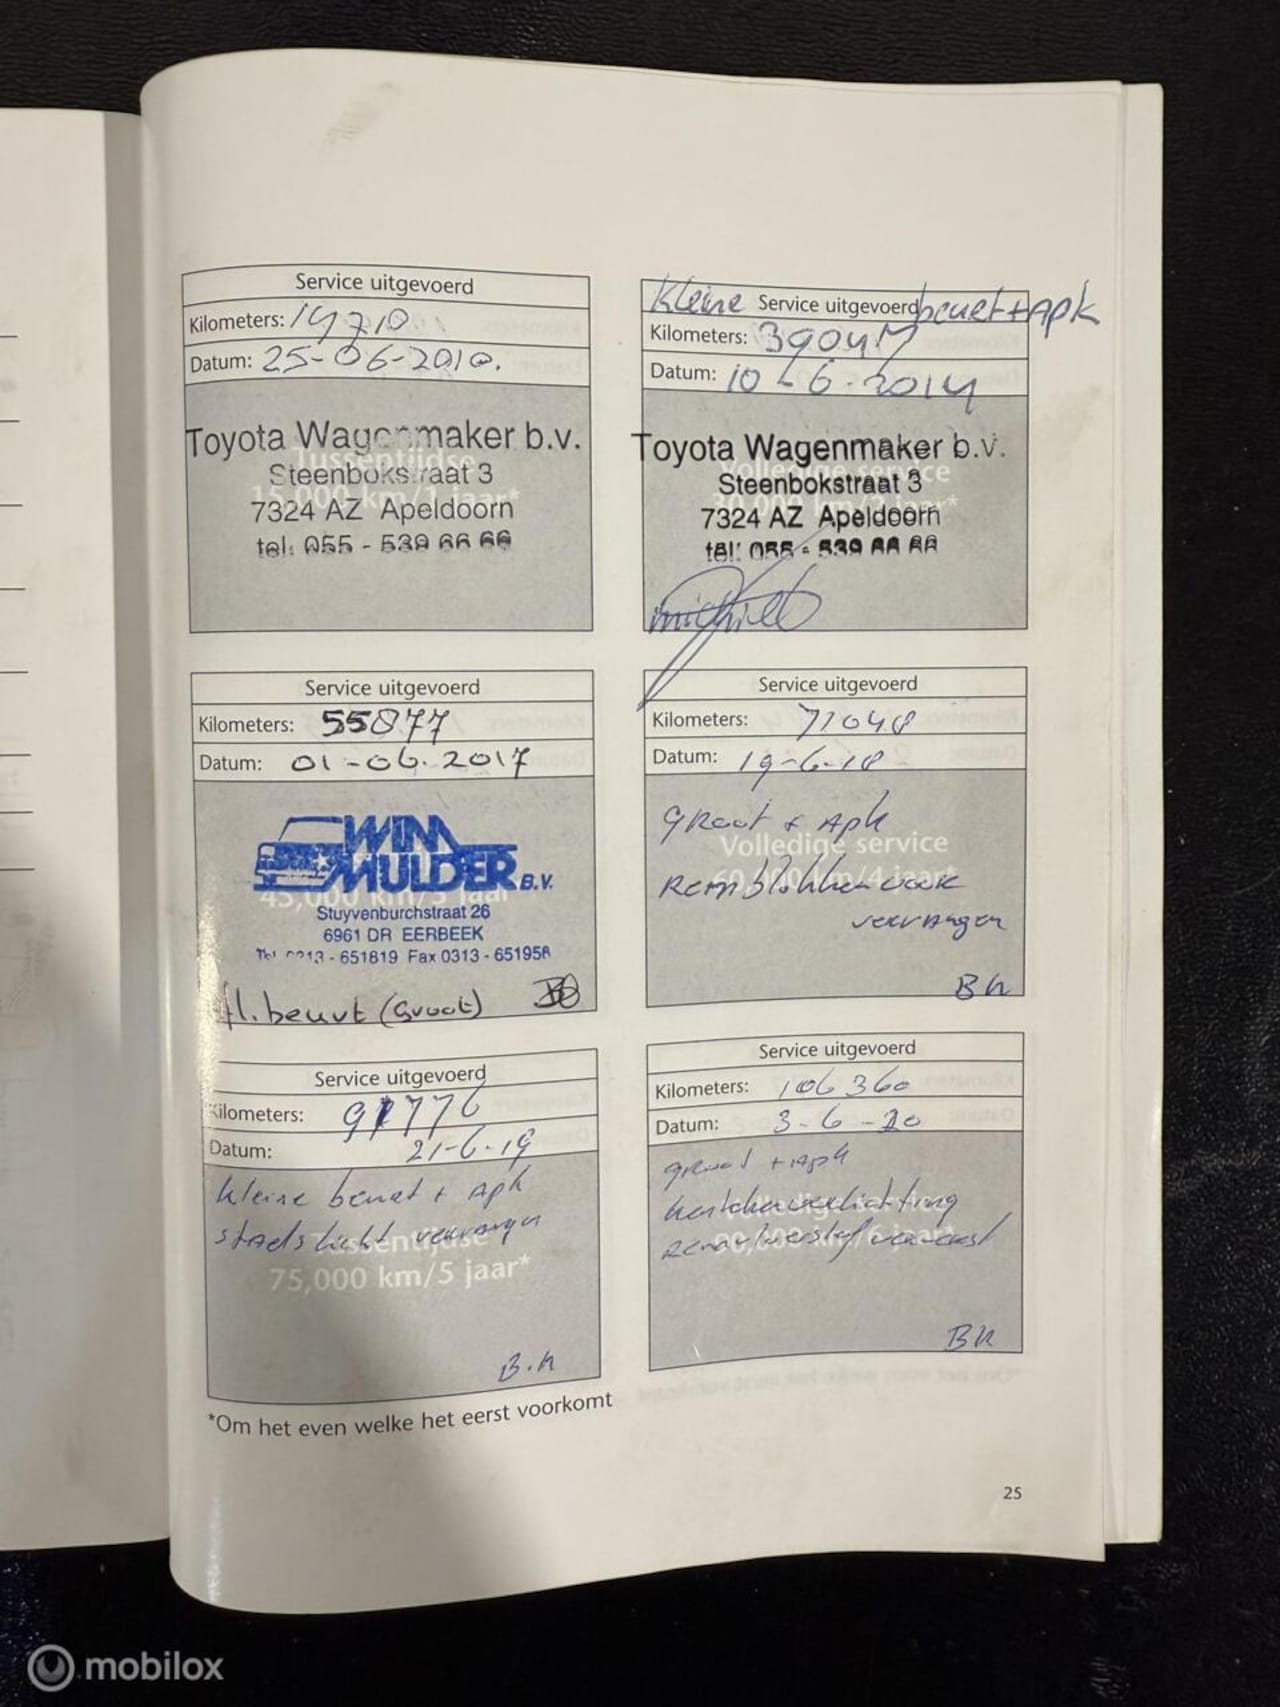 Service uitgevoerd
Kilometers: 19710
Datum: 25-06-2010.
Toyota Wagenmaker b.v.
Tussentijdse
Steenboksstraat 3
15,000 km/1 jaar*
7324 AZ Apeldoorn
tel: 055 - 539 66 66
Kleine Service uitgevoerd beurt + Apk
Kilometers: 39047
Datum: 10-6-2014
Toyota Wagenmaker b.v.
Volledige service
Steenbokstraat 3
7324 AZ Apeldoorn
tel: 055 - 539 66 66
Service uitgevoerd
Kilometers: 55877
Datum: 01-06-2017
WIM
MULDER B.V.
45,000 km/3 jaar*
Stuyvenburchstraat 26
6961 DR EERBEEK
Tel 0313 - 651819 Fax 0313 - 651958
beurt (Groot)
Service uitgevoerd
Kilometers: 71048
Datum: 19-6-18
Groot + Apk
Volledige service
60,000 km/4 jaar*
Remblokken voor
vervangen
BK
Service uitgevoerd
Kilometers: 91776
Datum: 21-6-19
kleine beurt + Apk
stadslicht vervangen
Tussentijdse
75,000 km/5 jaar*
B.K
Service uitgevoerd
Kilometers: 106360
Datum: 3-6-20
groot + Apk
Volledige service
kentekenverlichting
90,000 km/6 jaar*
Remvloeistof ververst
BK
*Om het even welke het eerst voorkomt
25
mobilox